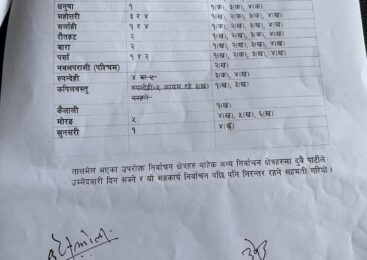 धनुषा १ १(क), ३(क), ४(क)
महोत्तरी ३ र ४ १(ख), २(क), ३(क), ४(ख)
सर्लाही १ र ४ १(क), २(ख), ३(क), ४(ख)
रौतहट २ १(क), २(ख), ३(ख), ४(क)
बारा २ १(ख), २(क), ३(ख), ४(ख)
पर्सा १ र २ १(ख), २(ख), ३(क), ४(ख)
नवलपरासी (पश्चिम) २(ख)
रुपन्देही ४ ३(क), ४(ख)
कपिलवस्तु २(ख), ३(ख)
कैलाली १(ख)
मोरङ ५ ४(ख), ५(ख), ६(ख)
सुनसरी १ ४
तालमेल भएका उपरोक्त निर्वाचन क्षेत्रहरु बाहेक अन्य निर्वाचन क्षेत्रहरुमा दुवै पार्टीले
उम्मेदवारी दिन सक्ने र यो सहकार्य निर्वाचन पछि पनि निरन्तर रहने सहमती गरियो ।